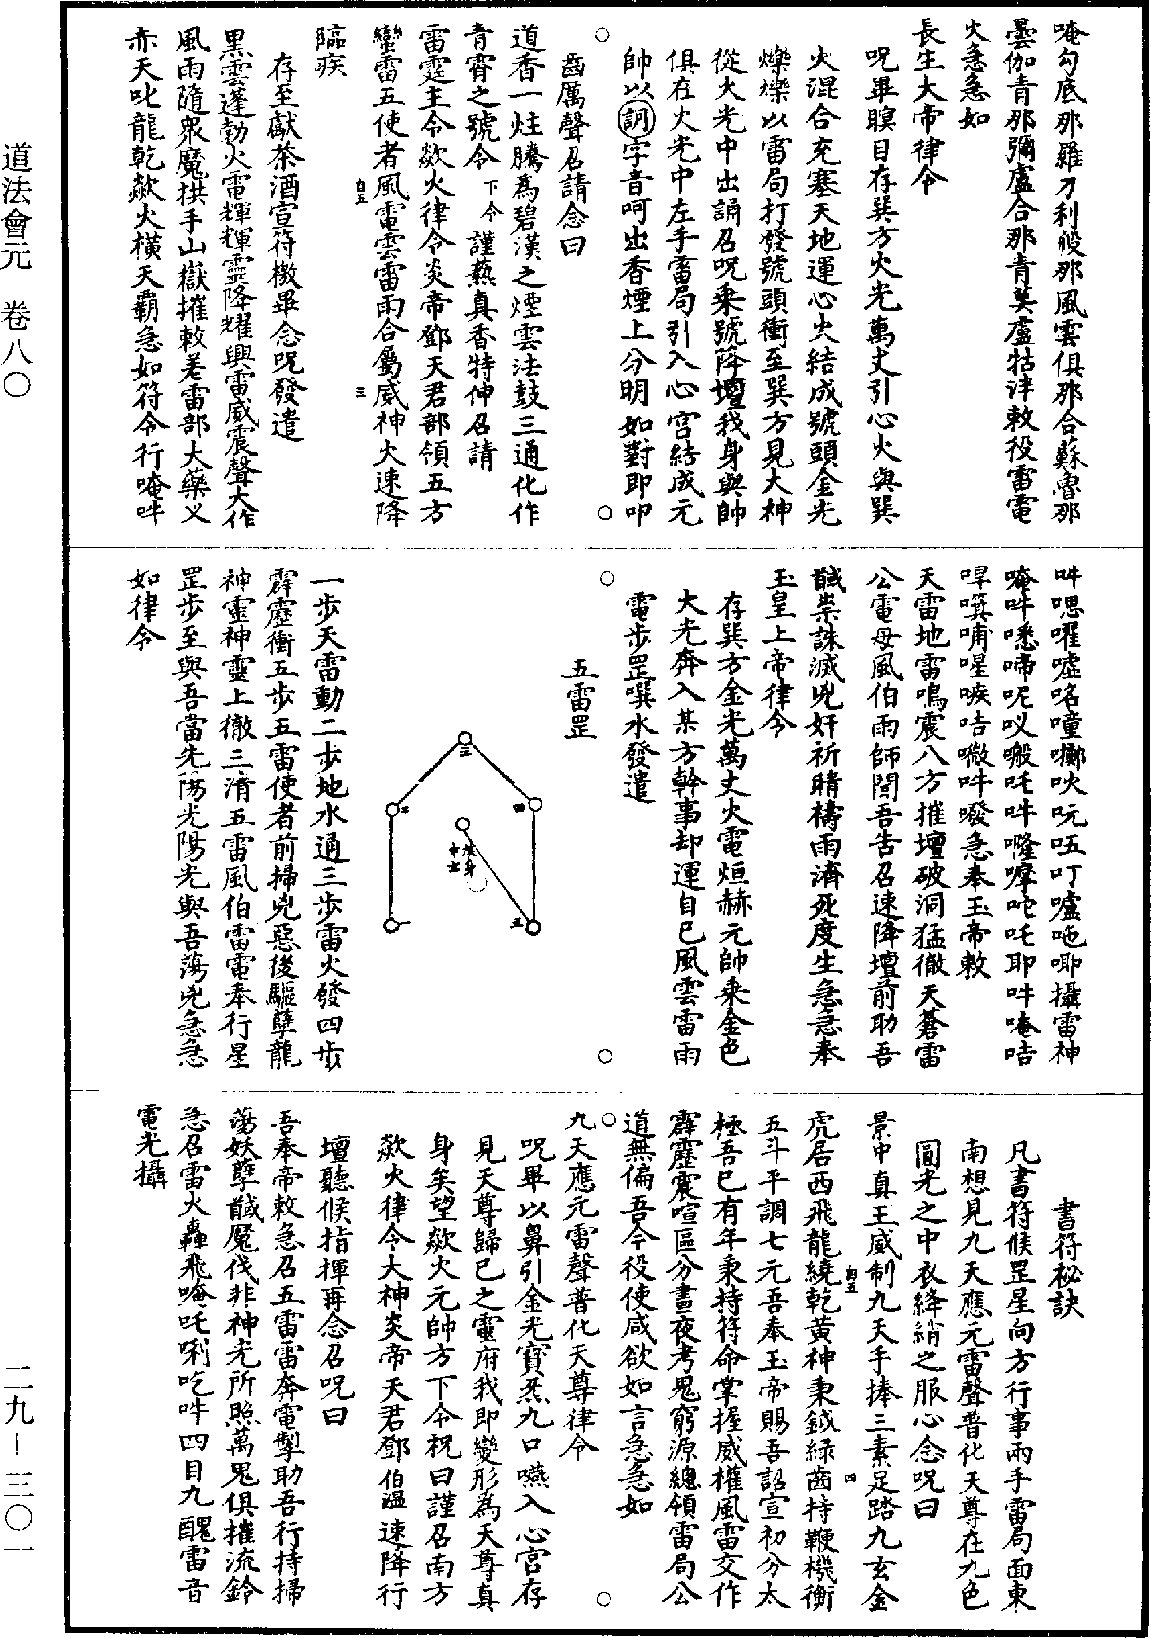 道法會元 卷八〇
二九—三〇一
唵勾底那羅刀利般那風雲俱那合蘇魯那
曇伽青那彌盧合那青莫盧牯泮敕役雷電
火急急如
長生大帝律令
咒畢瞑目存巽方火光萬丈引心火與巽
火混合充塞天地運心火結成號頭金光
爍爍以雷局打發號頭衝至巽方見大神
從火光中出誦召咒乘號降壇我身與帥
俱在火光中左手雷局引入心宮結成元
帥以訶字音呵出香煙上分明如對即叩
齒厲聲召請念曰
道香一炷騰為碧漢之煙雲法鼓三通化作
青霄之號令下令謹爇真香特伸召請
雷霆主令欻火律令炎帝鄧天君部領五方
蠻雷五使者風電雲雷雨合屬威神火速降
臨疾
存至獻茶酒宣符檄畢念咒發遣
黑雲蓬勃火電輝輝靈降耀興雷威震聲大作
風雨隨眾魔拱手山嶽摧敕差雷部大藥乂
赤天叱龍乾歘火橫天霸急如符令行唵吽
吽㗭嚾噓咯㗢㘄吙吭㕶叮嚧吔唧攝雷神
唵吽㗭啼呢㕥㗑吒吽㘑嚤咜吒耶吽唵咭
㖕噀哺喤㗨咭㘗吽㘔急奉玉帝敕
天雷地雷鳴震八方摧壇破洞猛徹天蒼雷
公電母風伯雨師聞吾告召速降壇前助吾
馘祟誅滅兇奸祈晴禱雨濟死度生急急奉
玉皇上帝律令
存巽方金光萬丈火電烜赫元帥乘金色
火光奔入某方幹事却運自己風雲雷雨
電步罡噀水發遣
五雷罡
三
二
四
一
五
一步天雷動二步地水通三步雷火發四步
霹靂衝五步五雷使者前掃兇惡後驅孽龍
神靈神靈上徹三清五雷風伯雷電奉行星
罡步至與吾當先陽光陽光與吾蕩兇急急
如律令
書符祕訣
凡書符候罡星向方行事兩手雷局面東
南想見九天應元雷聲普化天尊在九色
圓光之中衣絳綃之服心念咒曰
景中真王威制九天手捧三素足踏九玄金
虎居西飛龍繞乾黃神秉鉞綠齒持鞭機衡
五斗平調七元吾奉玉帝賜吾詔宣初分太
極吾已有年秉持符命掌握威權風雷交作
霹靂震喧區分晝夜考鬼窮源總領雷局公
道無偏吾今役使咸欲如言急急如
九天應元雷聲普化天尊律令
咒畢以鼻引金光寶炁九口嚥入心宮存
見天尊歸己之靈府我即變形為天尊真
身矣望歘火元帥方下令祝曰謹召南方
歘火律令大神炎帝天君鄧伯溫速降行
壇聽候指揮再念召咒曰
吾奉帝敕急召五雷雷奔電掣助吾行持掃
蕩妖孽馘魔伐非神光所照萬鬼俱摧流鈴
急召雷火轟飛唵吒唎吃吽四目九醜雷音
電光攝